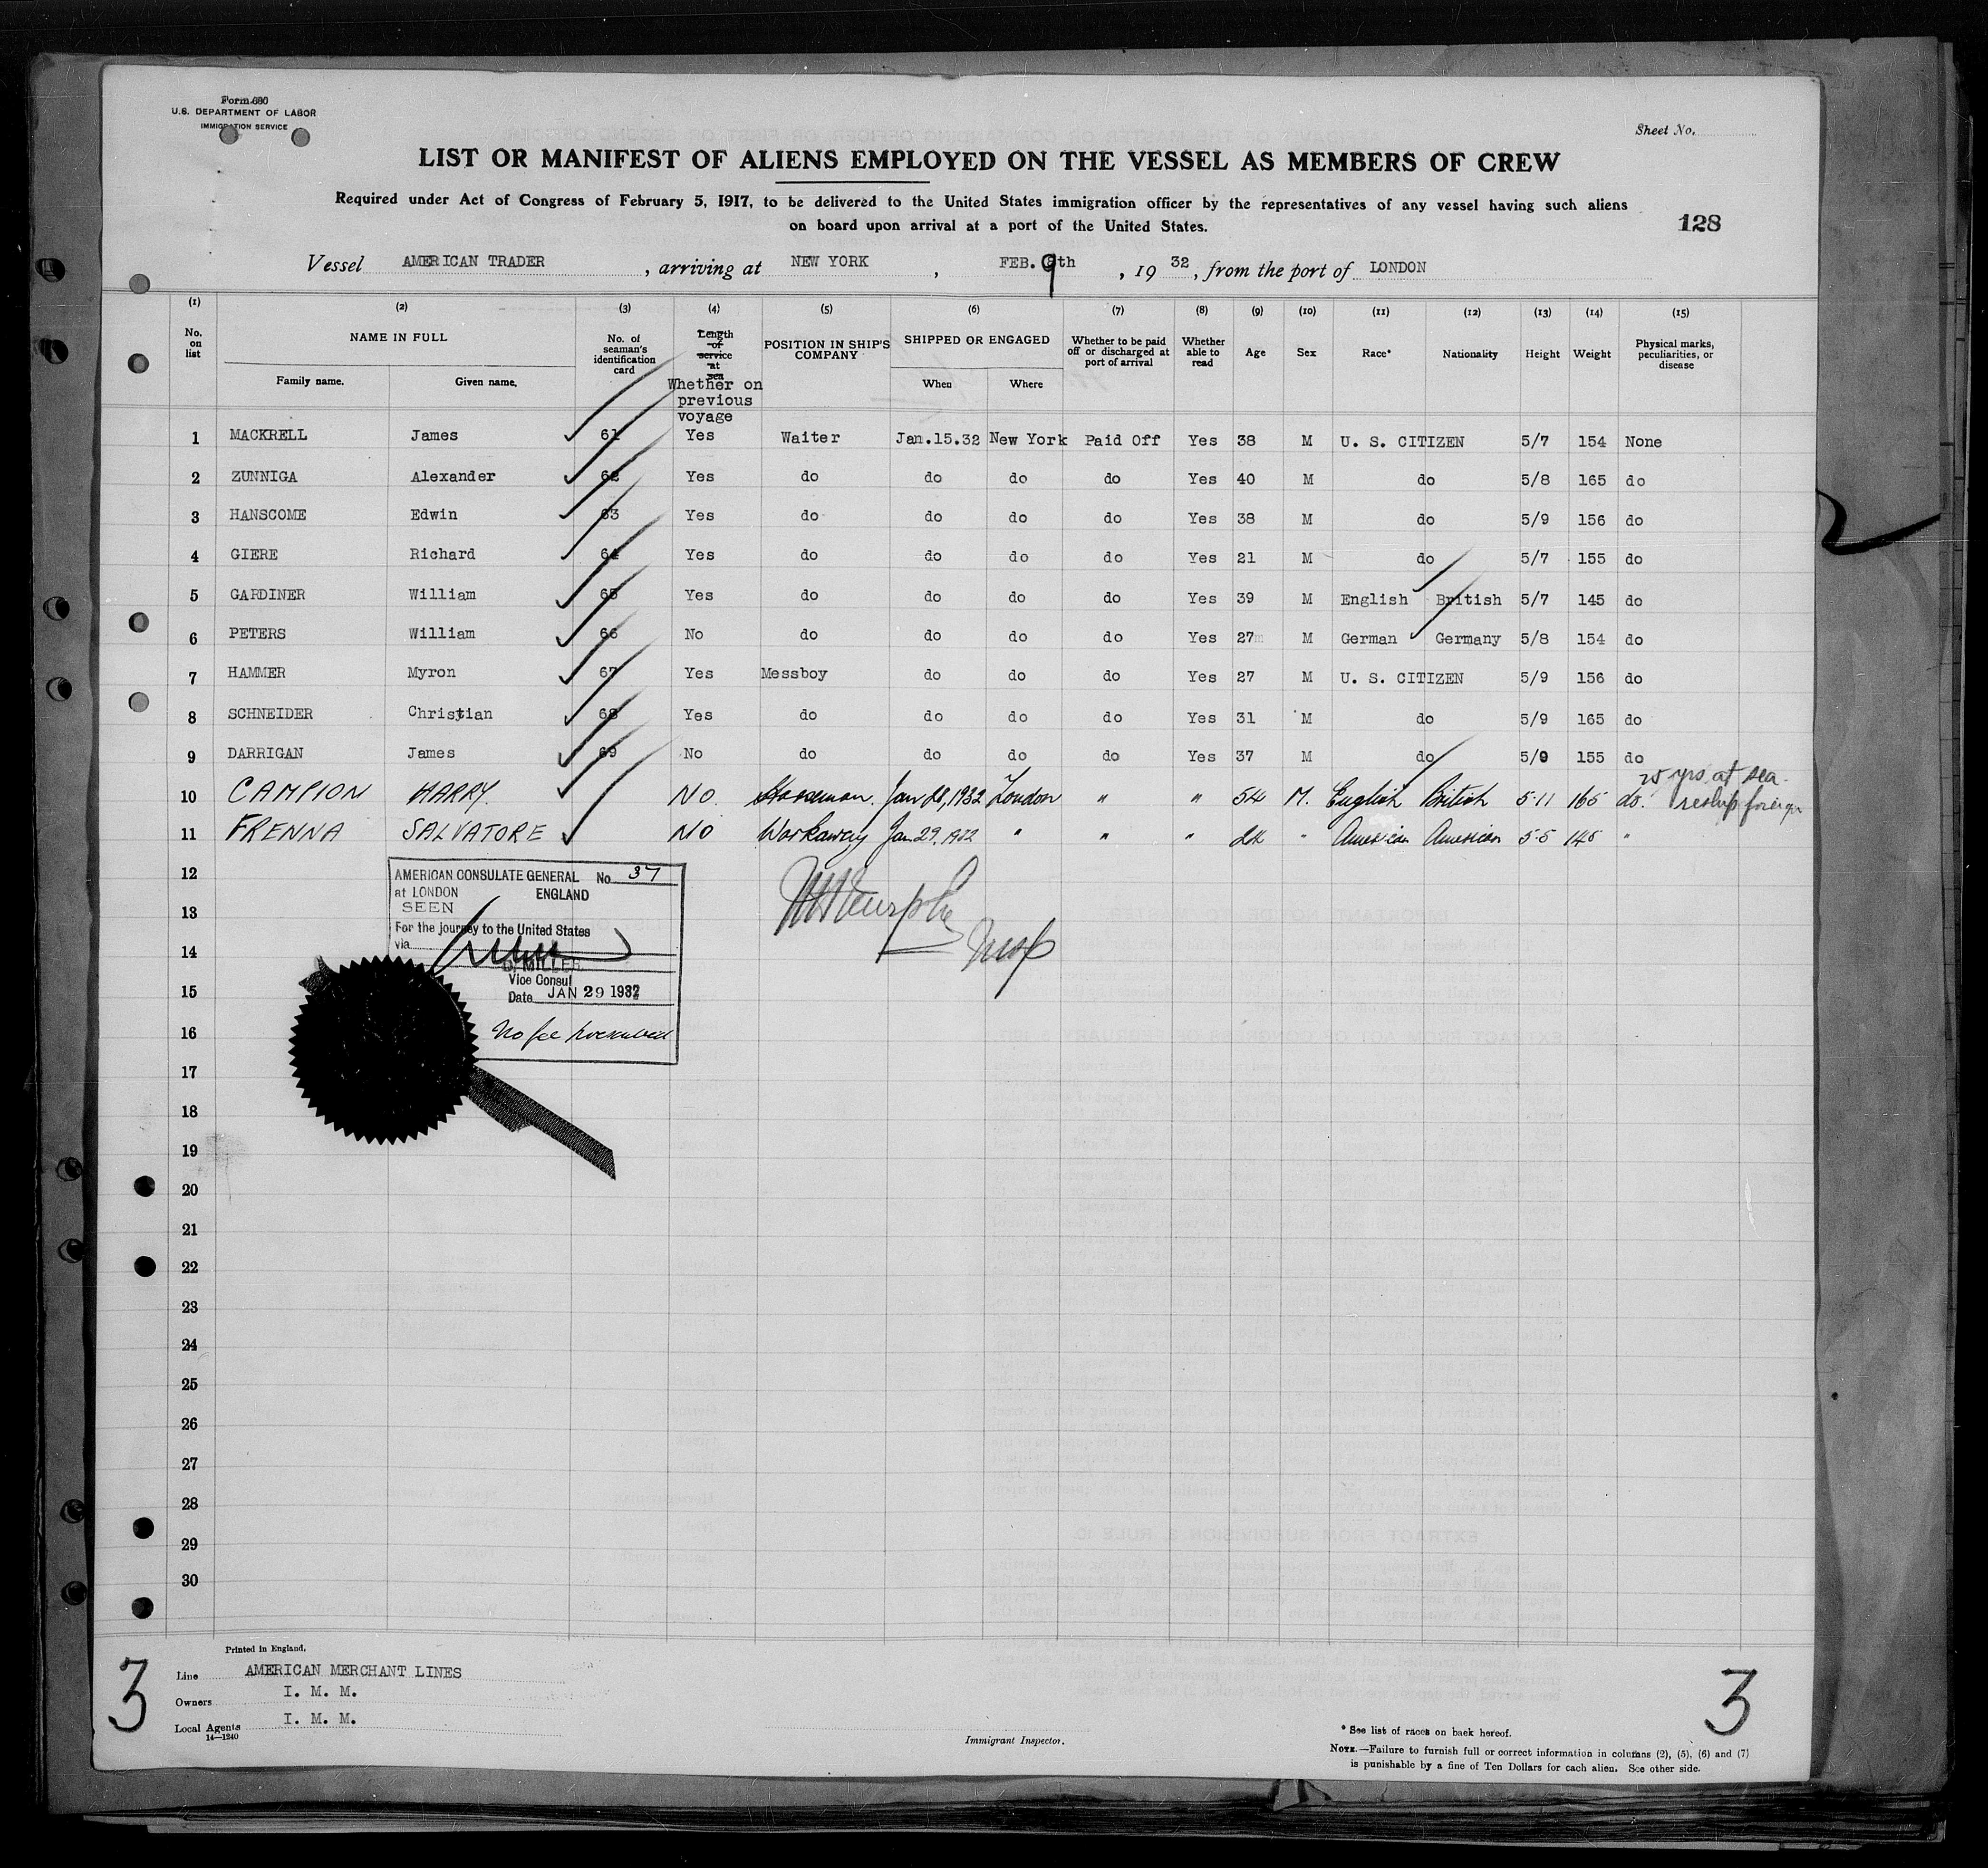 Form 680
U.S. DEPARTMENT OF LABOR
IMMIGRATION SERVICE
Sheet No.
LIST OR MANIFEST OF ALIENS EMPLOYED ON THE VESSEL AS MEMBERS OF CREW
Required under Act of Congress of February 5, 1917, to be delivered to the United States immigration officer by the representatives of any vessel having such aliens
on board upon arrival at a port of the United States.
128
Vessel AMERICAN TRADER, arriving at NEW YORK, FEB. 9th, 1932, from the port of LONDON
(1) (2) (3) (4) (5) (6) (7) (8) (9) (10) (11) (12) (13) (14) (15)
No. on list NAME IN FULL Family name. Given name. No. of seaman's identification card Length of service at sea Whether on previous voyage POSITION IN SHIP'S COMPANY SHIPPED OR ENGAGED When Where Whether to be paid off or discharged at port of arrival Whether able to read Age Sex Race* Nationality Height Weight Physical marks, peculiarities, or disease
1 MACKRELL James 61 Yes Waiter Jan.15.32 New York Paid Off Yes 38 M U. S. CITIZEN 5/7 154 None
2 ZUNNIGA Alexander 62 Yes do do do do Yes 40 M do 5/8 165 do
3 HANSCOME Edwin 63 Yes do do do do Yes 38 M do 5/9 156 do
4 GIERE Richard 64 Yes do do do do Yes 21 M do 5/7 155 do
5 GARDINER William 65 Yes do do do do Yes 39 M English British 5/7 145 do
6 PETERS William 66 No do do do do Yes 27m M German Germany 5/8 154 do
7 HAMMER Myron 67 Yes Messboy do do do Yes 27 M U. S. CITIZEN 5/9 156 do
8 SCHNEIDER Christian 68 Yes do do do do Yes 31 M do 5/9 165 do
9 DARRIGAN James 69 No do do do do Yes 37 M do 5/9 155 do
25 yrs at sea.
10 CAMPION HARRY. NO. Horseman. Jan 28, 1932 London " " 54 M. English British 5-11 165 do. reship foreign
11 FRENNA SALVATORE NO Workaway Jan 29, 1932 " " " 24 " American American 5-5 145 "
12
13
14
15
16
17
18
19
20
21
22
23
24
25
26
27
28
29
30
AMERICAN CONSULATE GENERAL No. 37
at LONDON ENGLAND
SEEN
For the journey to the United States
via
MILLER
Vice Consul
Date JAN 29 1932
No fee
Insp
Printed in England.
Line AMERICAN MERCHANT LINES
Owners I. M. M.
Local Agents I. M. M.
14—1240
3
Immigrant Inspector.
* See list of races on back hereof.
NOTE.—Failure to furnish full or correct information in columns (2), (5), (6) and (7)
is punishable by a fine of Ten Dollars for each alien. See other side.
3